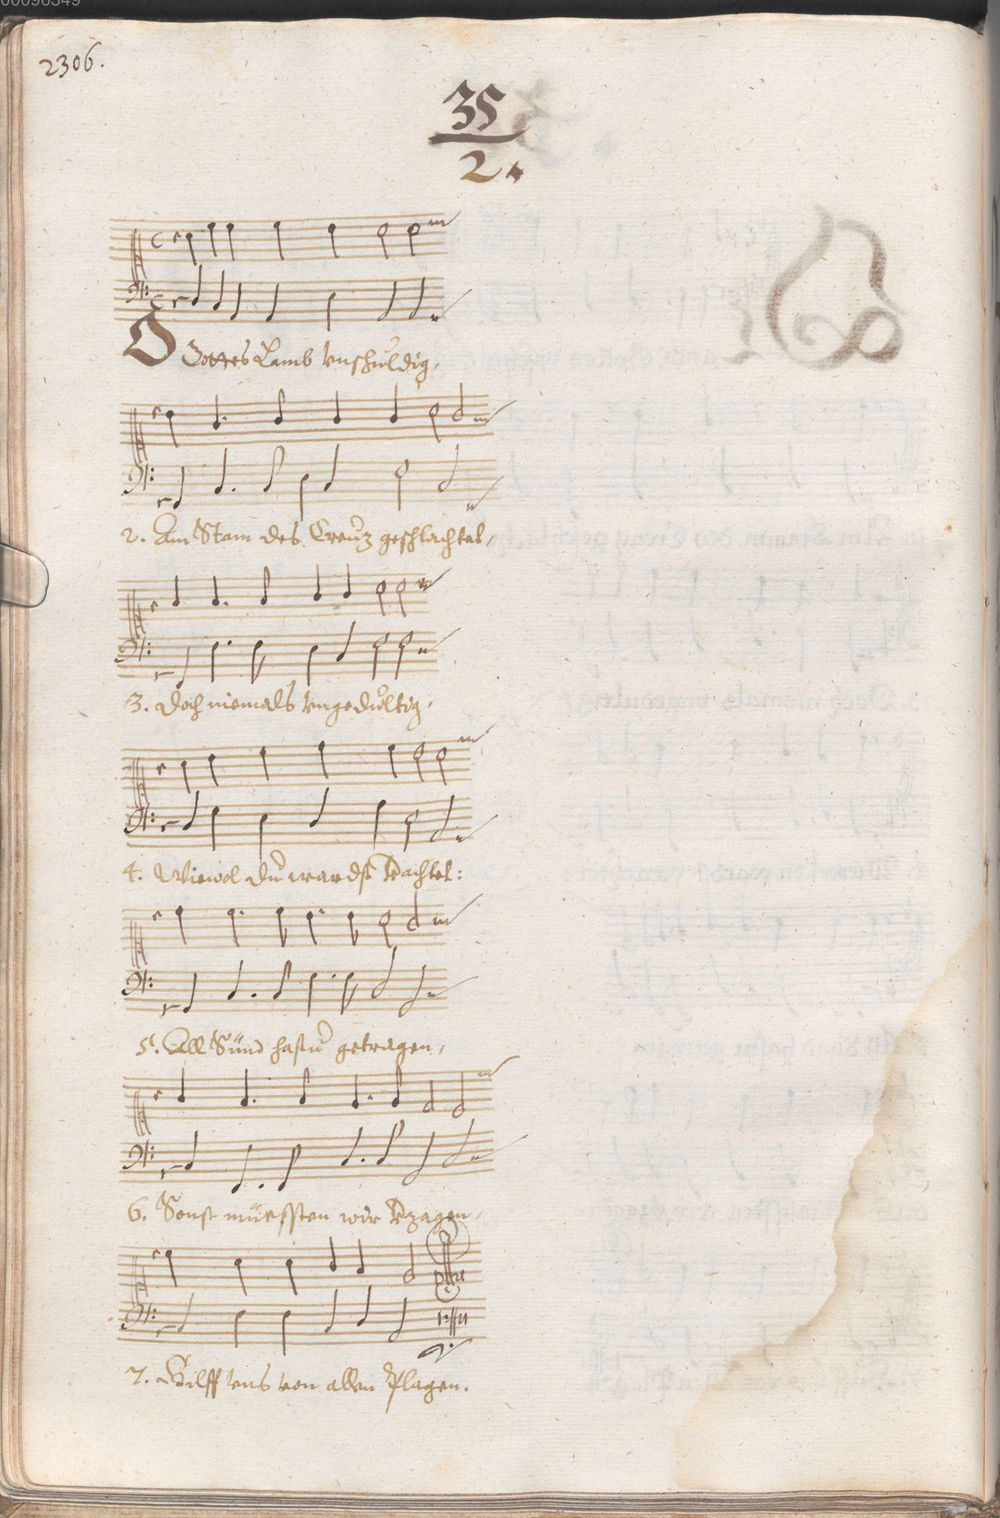 00096349
2306.
35
2.
O Gottes Lamb vnschuldig,
2. Am Stam des Creutz geschlachtet,
3. Doch niemals vngedultig,
4. Wiewol du wardst verachtet:
5. All Sünd hastu getragen,
6. Sonst müessten wir verzagen,
7. Hilff vns von allen Plagen.